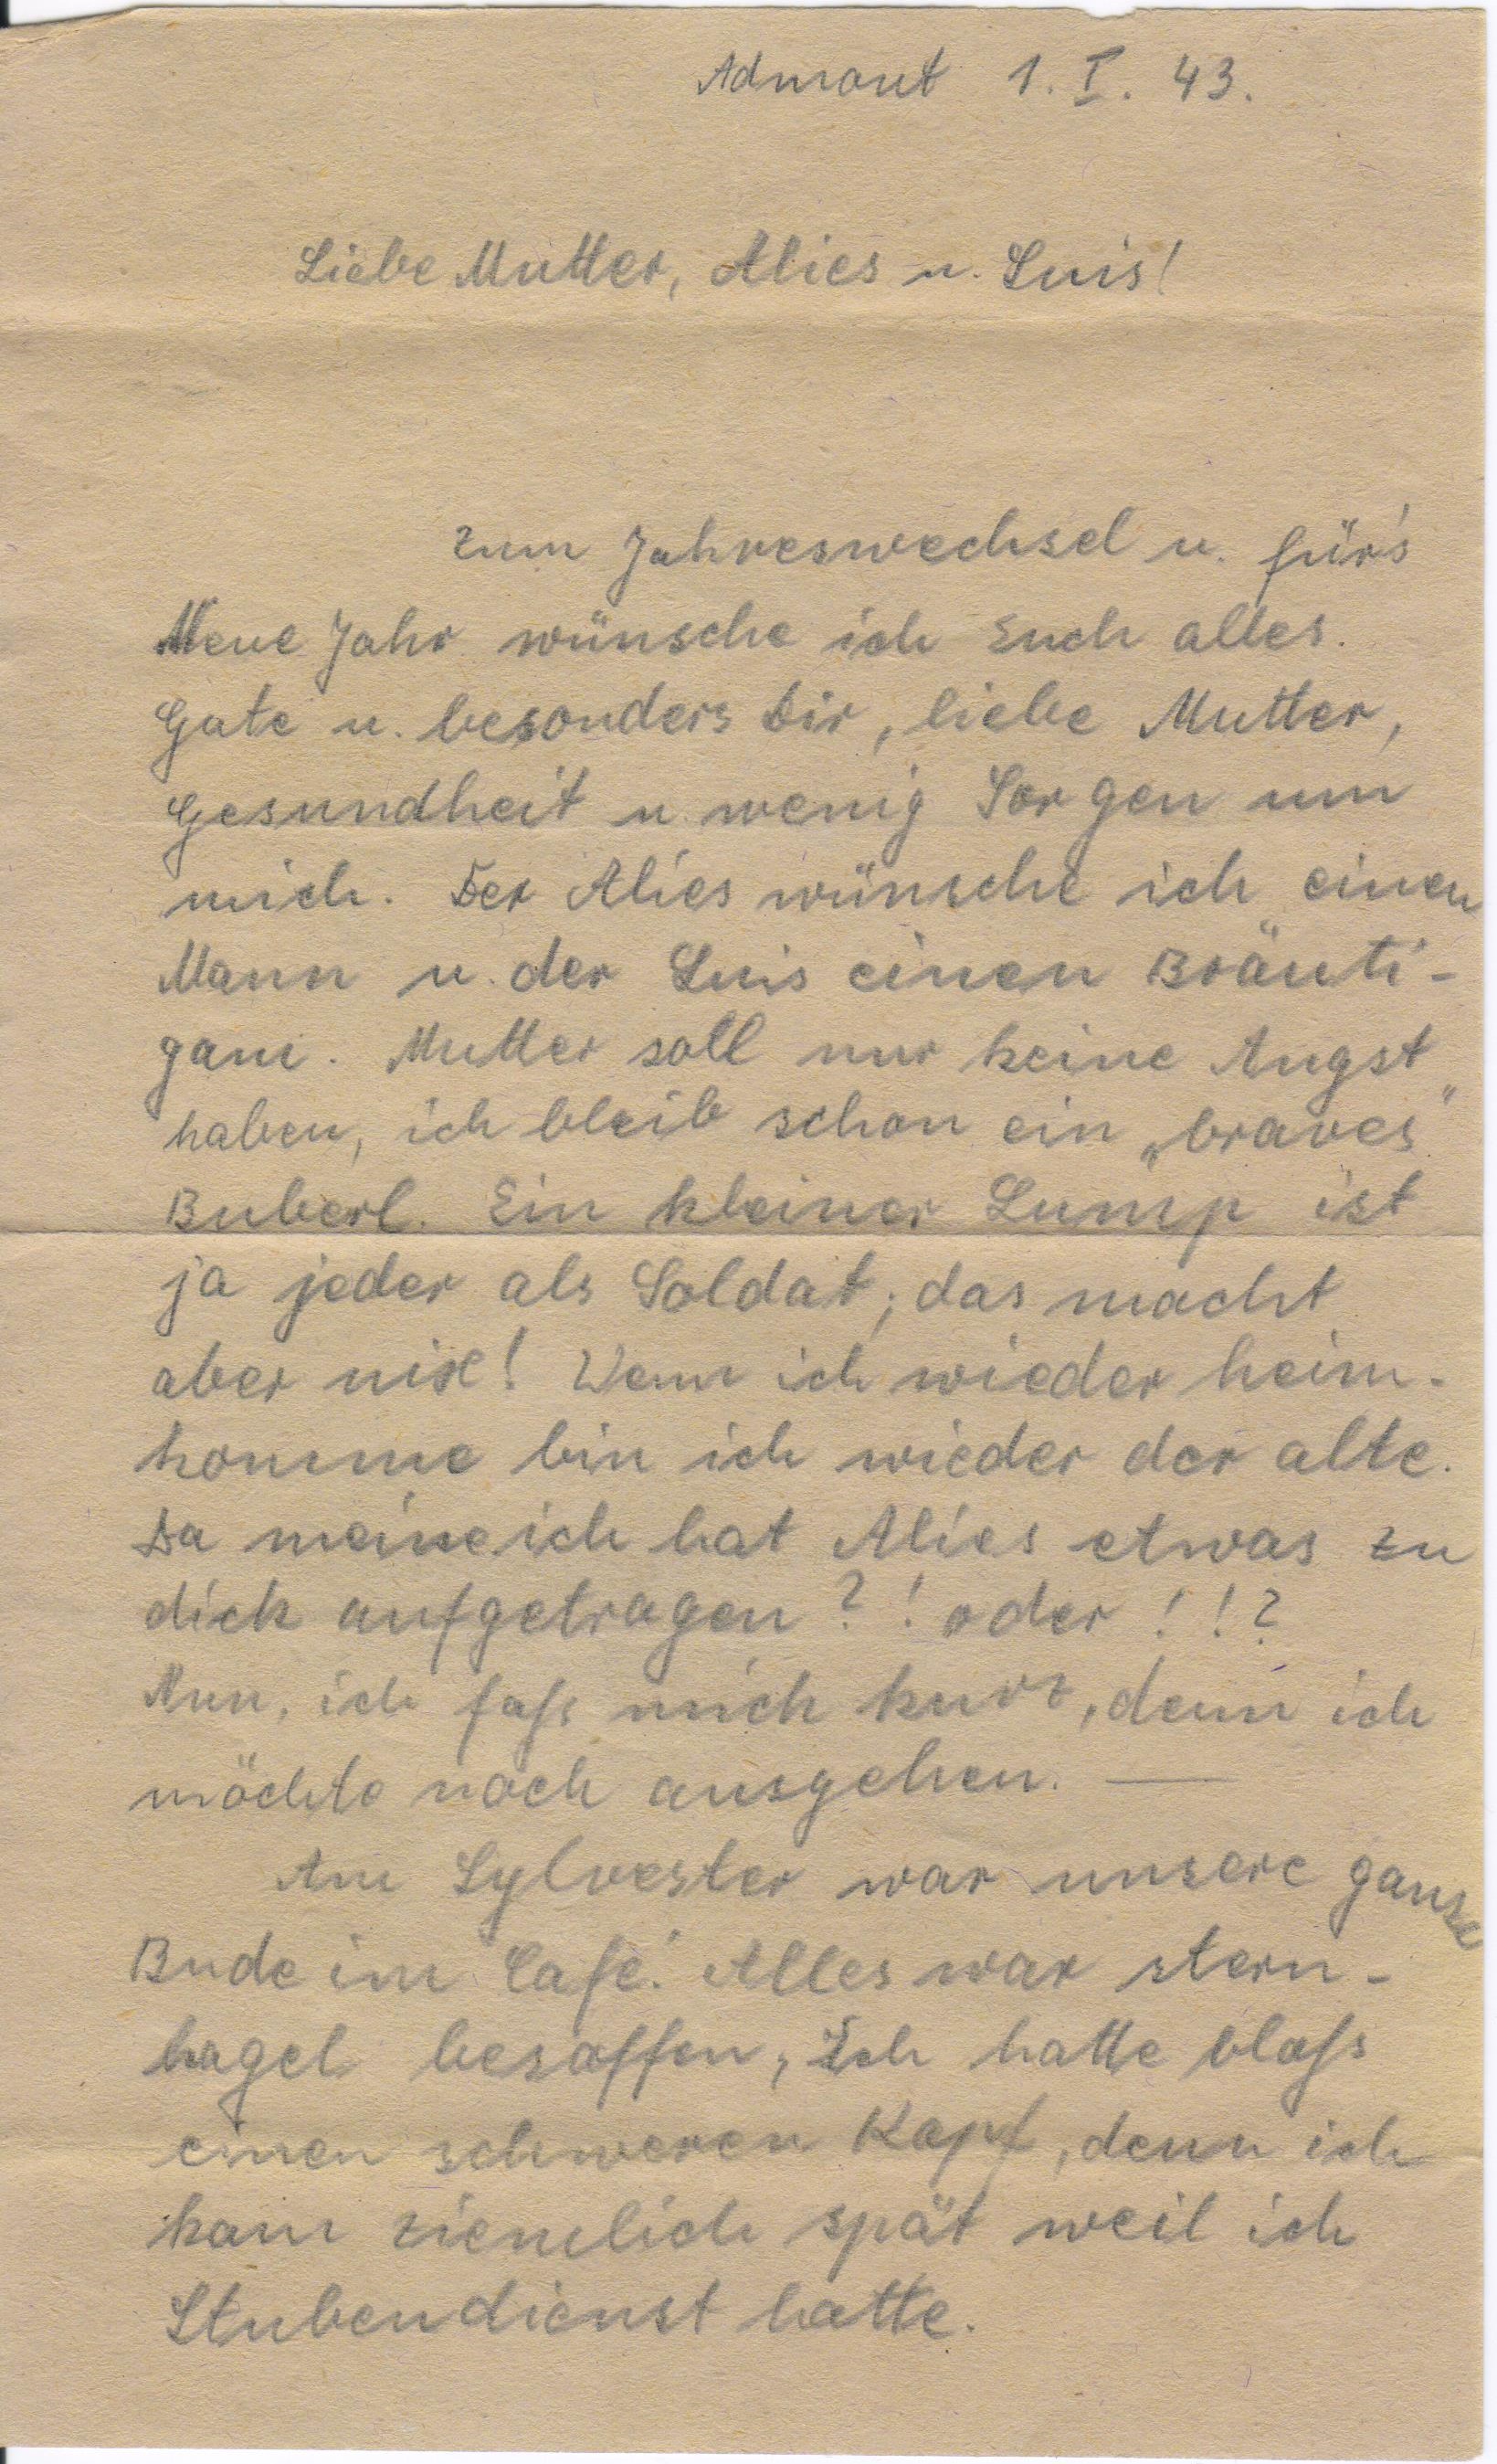 Admont 1. I. 43.
Liebe Mutter, Alies u. Luis!
Zum Jahreswechsel u. für's
Neue Jahr wünsche ich Euch alles.
Gute u. besonders Dir, liebe Mutter,
Gesundheit u. wenig Sorgen um
mich. Der Alies wünsche ich einen
Mann u. der Luis einen Bräuti-
gam. Mutter soll nur keine Angst
haben, ich bleib schon ein „braves"
Buberl. Ein kleiner Lump ist
ja jeder als Soldat, das macht
aber nix! Wenn ich wieder heim-
komme bin ich wieder der alte.
Da meine ich hat Alies etwas zu
dick aufgetragen?! oder!!?
Nun, ich fass mich kurz, denn ich
möchte noch ausgehen. —
Am Sylvester war unsere ganze
Bude im Café. Alles war stern-
hagel besoffen, Ich hatte bloss
einen schweren Kopf, denn ich
kam ziemlich spät weil ich
Stubendienst hatte.